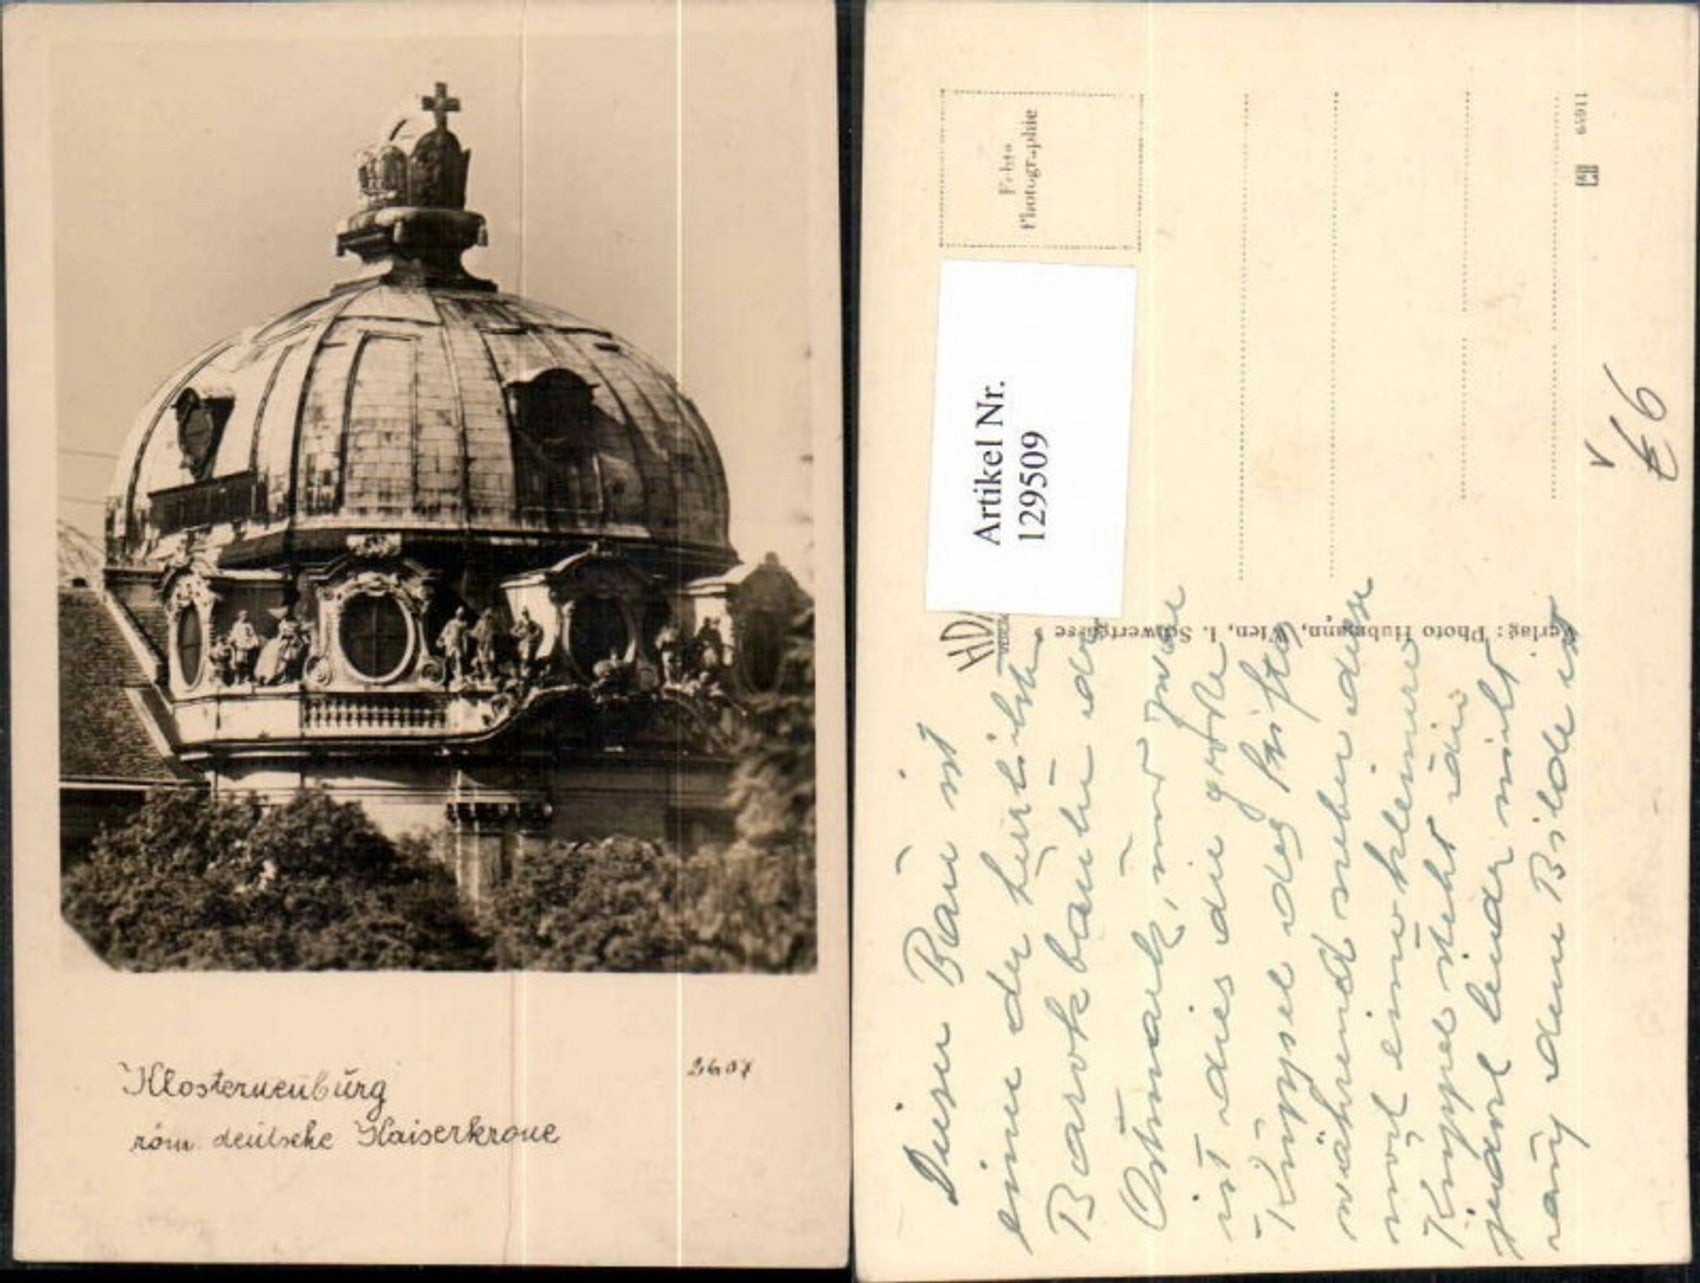 Klosterneuburg
röm. deutsche Kaiserkrone
2607
Echte
Photographie
Artikel Nr.
1295509
Verlag: Photo Hubmann, Wien, I. Schwertgasse
65011
Dieser Bau ist
einer der herrlichsten
Barockbauten der
Ostmark, und zwar
ist dies die große
Kuppel des Stiftes
während neben dieser
noch eine kleinere
Kuppel steht die
jedoch leider nicht
auf dem Bilde ist